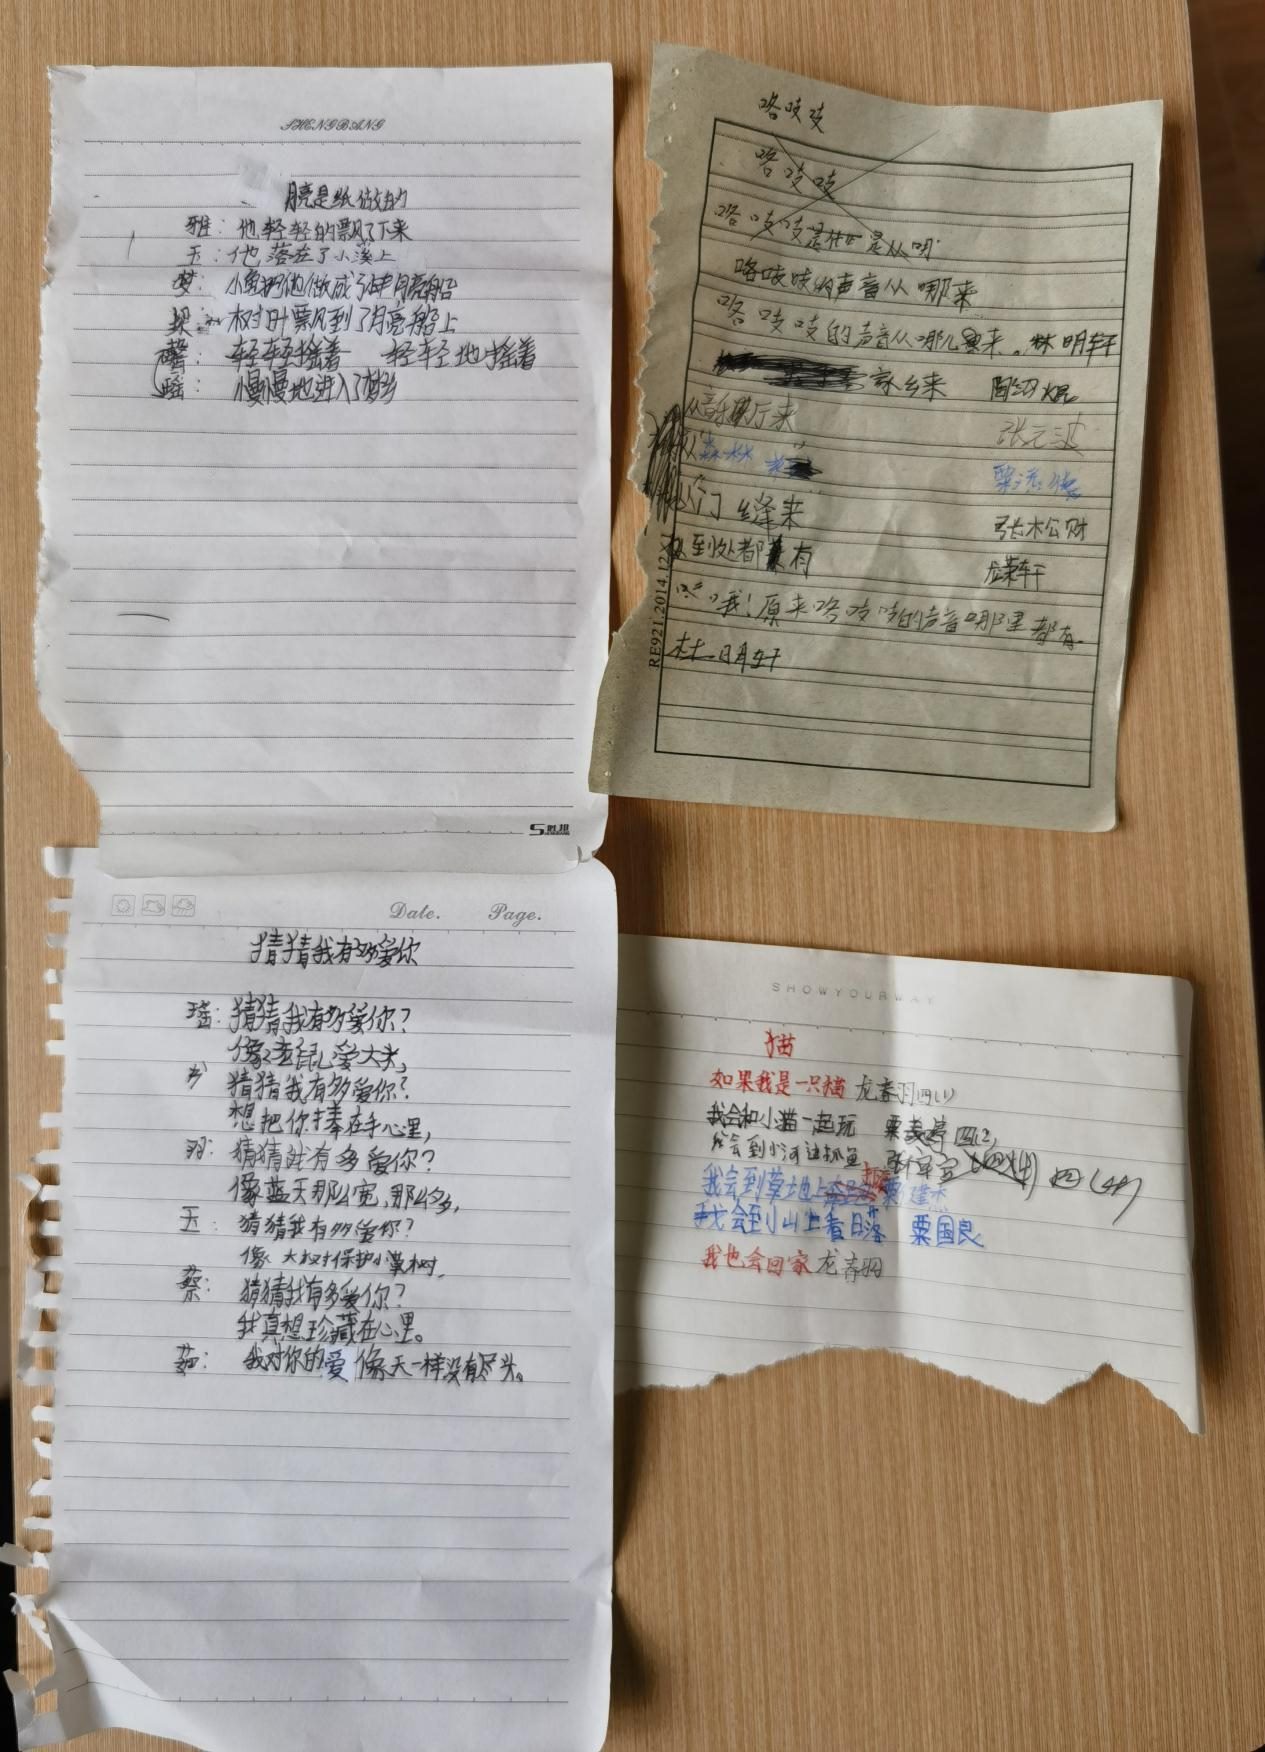 SHENGBANG
月亮是纸做的
雅：他轻轻的飘了下来
玉：他落在了小溪上
梦：小兔把他做成了月亮船
树叶飘到了月亮船上
馨：轻轻摇着 轻轻地摇着
瑶：慢慢地进入了梦乡
胜邦
咯吱吱
咯吱吱
咯吱吱是什么 是从明
咯吱吱的声音从哪来
咯吱吱的声音从哪儿里来。林明轩
家乡来
从音乐厅来 张元波
森林 来
从门缝来 张松财
到处都有
哦！原来咯吱吱的声音哪里都有
杜明轩
RE921.2014.12
Date. Page.
猜猜我有多爱你
瑶：猜猜我有多爱你？
像老鼠爱大米，
猜猜我有多爱你？
想把你捧在手心里，
羽：猜猜我有多爱你？
像蓝天那么宽，那么多，
玉：猜猜我有多爱你？
像大树保护小草树，
蔡：猜猜我有多爱你？
我真想珍藏在心里。
茹：我对你的爱像天一样没有尽头。
SHOWYOURWAY
猫
如果我是一只猫 龙春羽四(1)
我会和小猫一起玩 粟美婷 四(2)
我会到小河边抓鱼
我会到草地上
我会到小山上看日落 粟国良
我也会回家 龙春羽